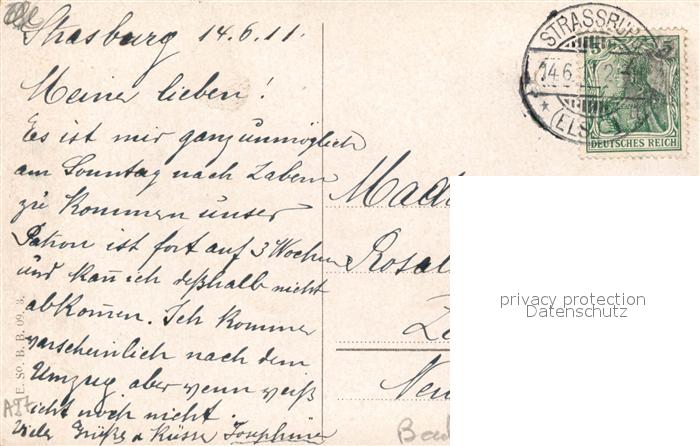 Strasburg 14.6.11.
Meine lieben!
Es ist mir ganz unmöglich
am Sonntag nach Zabern
zu kommen unser
Patron ist fort auf 3 Wochen
und kan̄ ich deßhalb nicht
abkom̄en. Ich komme
warscheinlich nach dem
Umzug aber wenn weiß
icht noch nicht.
Viele Grüße u Küsse Josephine
STRASSBU
14.6.
ELS
5
5
DEUTSCHES REICH
Mad
Rosal
Za
Neu
privacy protection
Datenschutz
E. So. B. B. 09. 3.